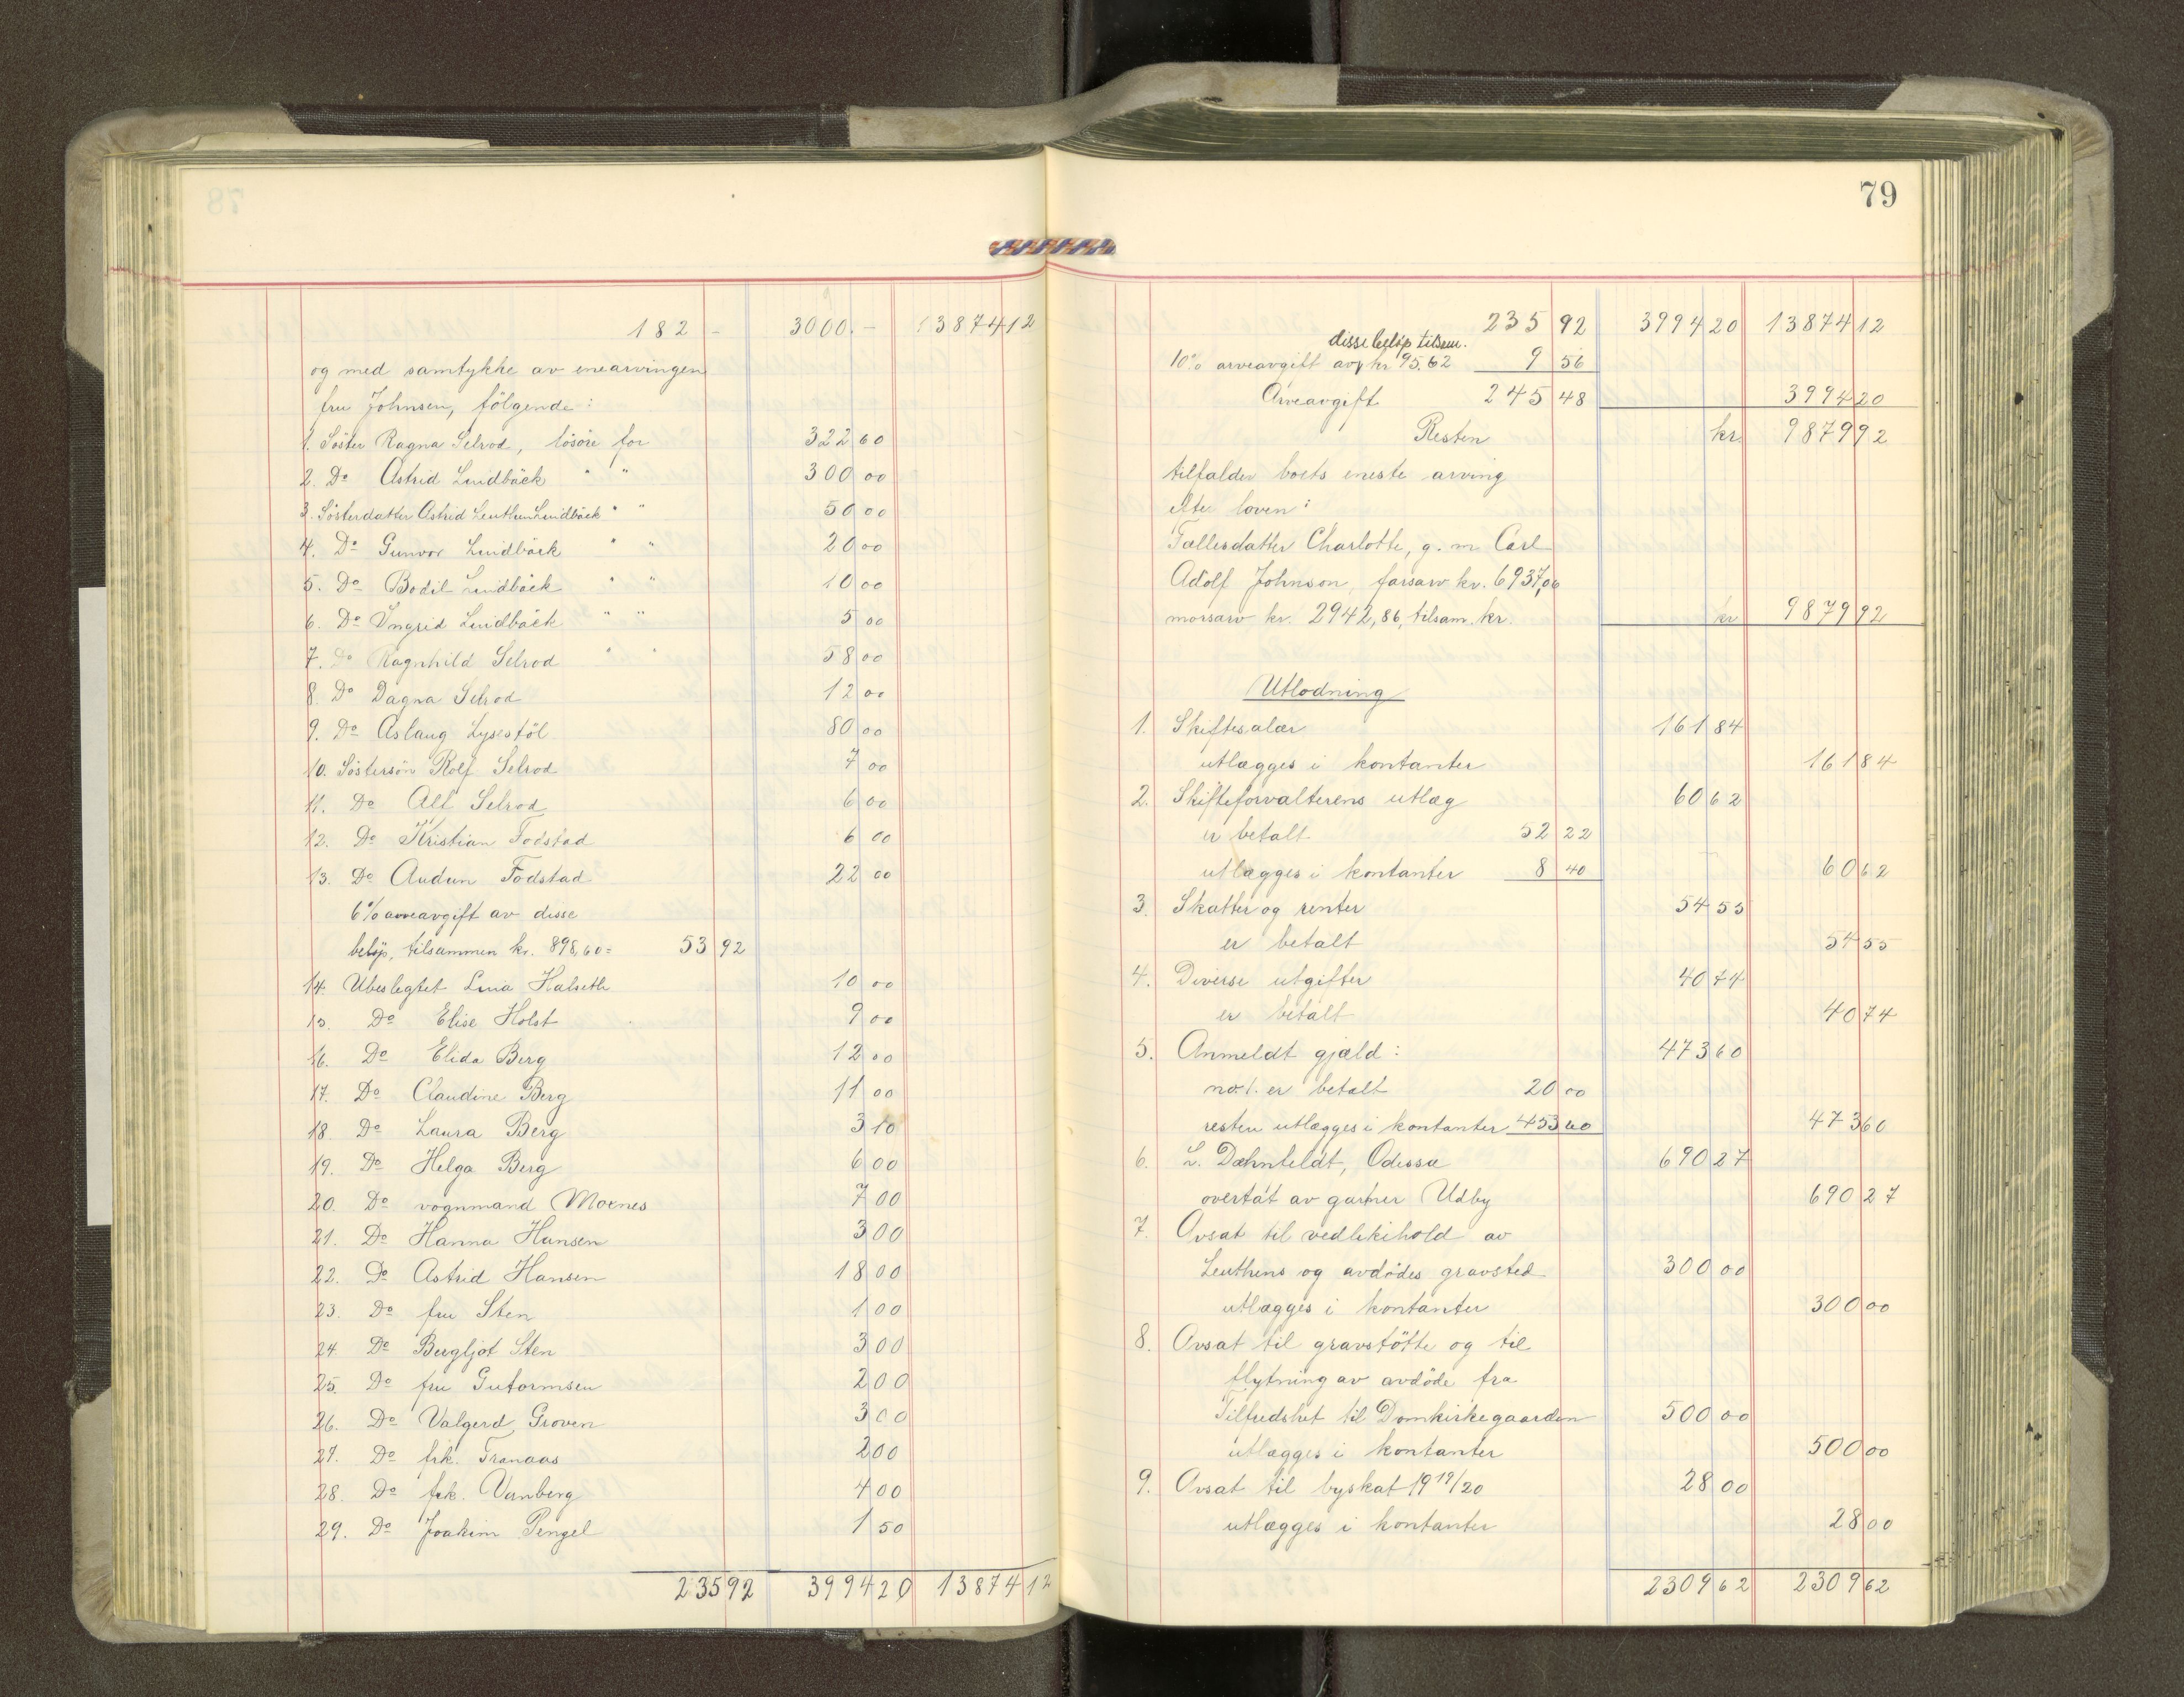 182 - 3000.- 13874 12
og med samtykke av enearvingen
fru Johnsen, følgende:
1. Söster Ragna Selrod, lösöre for 322 60
2. Do Astrid Lindbäck " " 300 00
3. Sösterdatter Astrid Leuthen Lindbäck " " 50 00
4. Do Gunvor Lindbäck " " 20 00
5. Do Bodil Lindbäck " " 10 00
6. Do Yngrid Lindbäck " " 5 00
7. Do Ragnhild Selrod " " 58 00
8. Do Dagna Selrod 12 00
9. Do Aslaug Lysestöl 80 00
10. Söstersön Rolf Selrod 7 00
11. Do Alf Selrod 6 00
12. Do Kristian Fodstad 6 00
13. Do Audun Fodstad 22 00
6% arveavgift av disse
belöp, tilsammen kr. 898,60= 53 92
14. Ubeslegtet Lina Halseth 10 00
15. Do Elise Holst 9 00
16. Do Elida Berg 12 00
17. Do Claudine Berg 11 00
18. Do Laura Berg 3 10
19. Do Helga Berg 6 00
20. Do vognmand Moenes 7 00
21. Do Hanna Hansen 3 00
22. Do Astrid Hansen 18 00
23. Do fru Sten 1 00
24. Do Bergljot Sten 3 00
25. Do fru Gutormsen 2 00
26. Do Valgerd Groven 3 00
27. Do frk. Tranaas 2 00
28. Do frk. Vanberg 4 00
29. Do Joakim Pengel 1 50
235 92 3994 20 13874 12
79
235 92 3994 20 13874 12
disse belöp tilsam.
10% arveavgift av kr 95.62 9 56
Arveavgift 245 48 3994 20
Resten kr. 9879 92
tilfalder boets eneste arving
efter loven:
Fællesdatter Charlotte, g. m. Carl
Adolf Johnson, farsarv kr. 6937,06
morsarv kr. 2942,86, tilsam. kr. kr 9879 92
Utlodning
1. Skiftesalær 161 84
utlægges i kontanter 161 84
2. Skifteforvalterens utlæg 60 62
er betalt 52 22
utlægges i kontanter 8 40 60 62
3. Skatter og renter 54 55
er betalt 54 55
4. Diverse utgifter 40 74
er betalt 40 74
5. Anmeldt gjæld: 473 60
no. 1. er betalt 20 00
resten utlægges i kontanter 453 60 473 60
6. L. Dæhnfeldt, Odessa 690 27
overtat av gartner Udby 690 27
7. Avsat til vedlikehold av
Leuthens og avdödes gravsted 300 00
utlægges i kontanter 300 00
8. Avsat til gravstötte og til
flytning av avdöde fra
Tilfredshet til Domkirkegaarden 500 00
utlægges i kontanter 500 00
9. Avsat til byskat 19 19/20 28 00
utlægges i kontanter 28 00
2309 62 2309 62